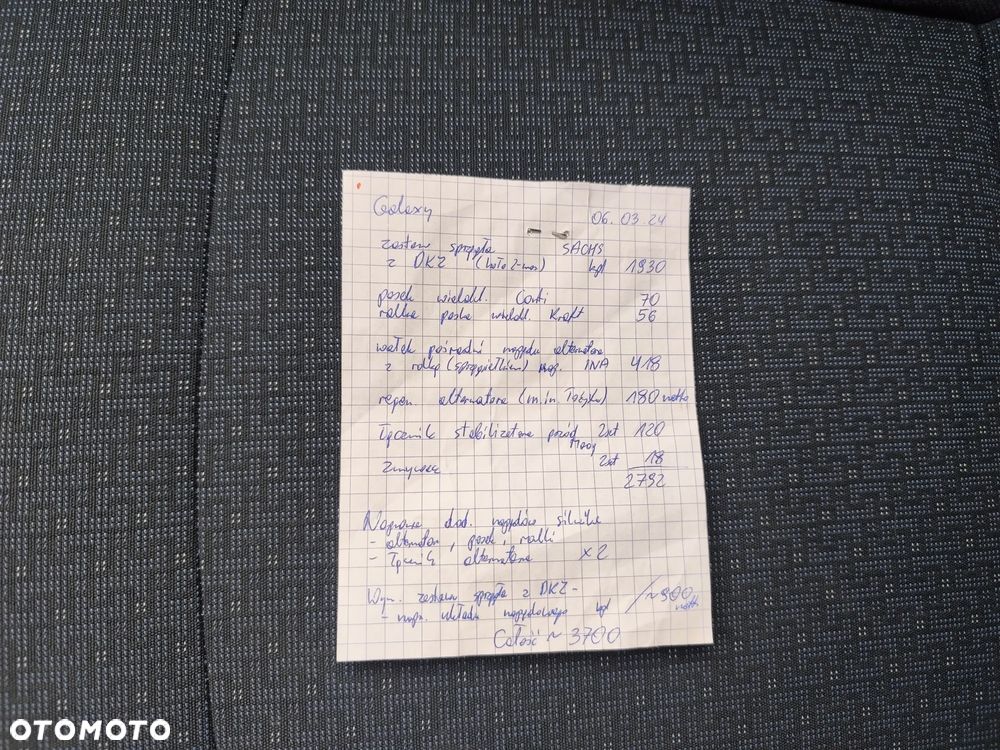 Galaxy 06.03.24
zestaw sprzęgła SACHS
z DKZ (koło 2-mas) kpl 1930
pasek wielokl. Conti 70
rolka paska wielokl. Kraft 56
wałek pośredni napędu alternatora
z rolką (sprzęgiełkiem) INA 418
regen. alternatora (m.in. łożyska) 180 netto
łącznik stabilizatora przód 2szt 120
Moog
Zmywacz 2szt 18
2792
Naprawa dod. napędów silnika
- alternator, pasek, rolki
- łącznik alternatora x2
Wym. zestawu sprzęgła z DKZ -
- napr. układu napędowego kpl /~900
netto
Całość ~ 3700
OTOMOTO